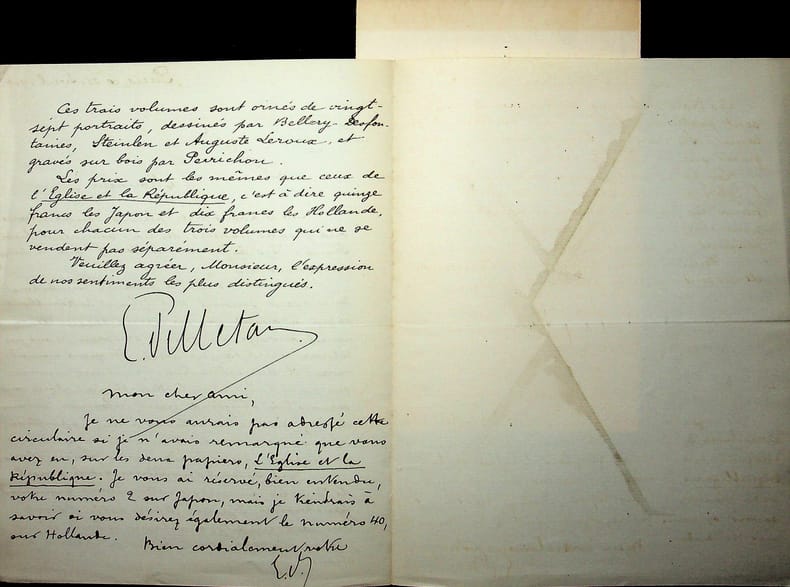 Ces trois volumes sont ornés de vingt-
sept portraits, dessinés par Bellery-Desfon-
taines, Steinlen et Auguste Leroux, et
gravés sur bois par Perrichon.
Les prix sont les mêmes que ceux de
l'Eglise et la République, c'est à dire quinze
francs les Japon et dix francs les Hollande,
pour chacun des trois volumes qui ne se
vendent pas séparément.
Veuillez agréer, Monsieur, l'expression
de nos sentiments les plus distingués.
E. Pelletan
Mon cher ami,
Je ne vous aurais pas adressé cette
circulaire si je n'avais remarqué que vous
avez eu, sur les deux papiers, l'Eglise et la
République. Je vous ai réservé, bien entendu,
votre numéro 2 sur Japon, mais je tiendrais à
savoir si vous désirez également le numéro 40,
sur Hollande.
Bien cordialement votre
E. P.